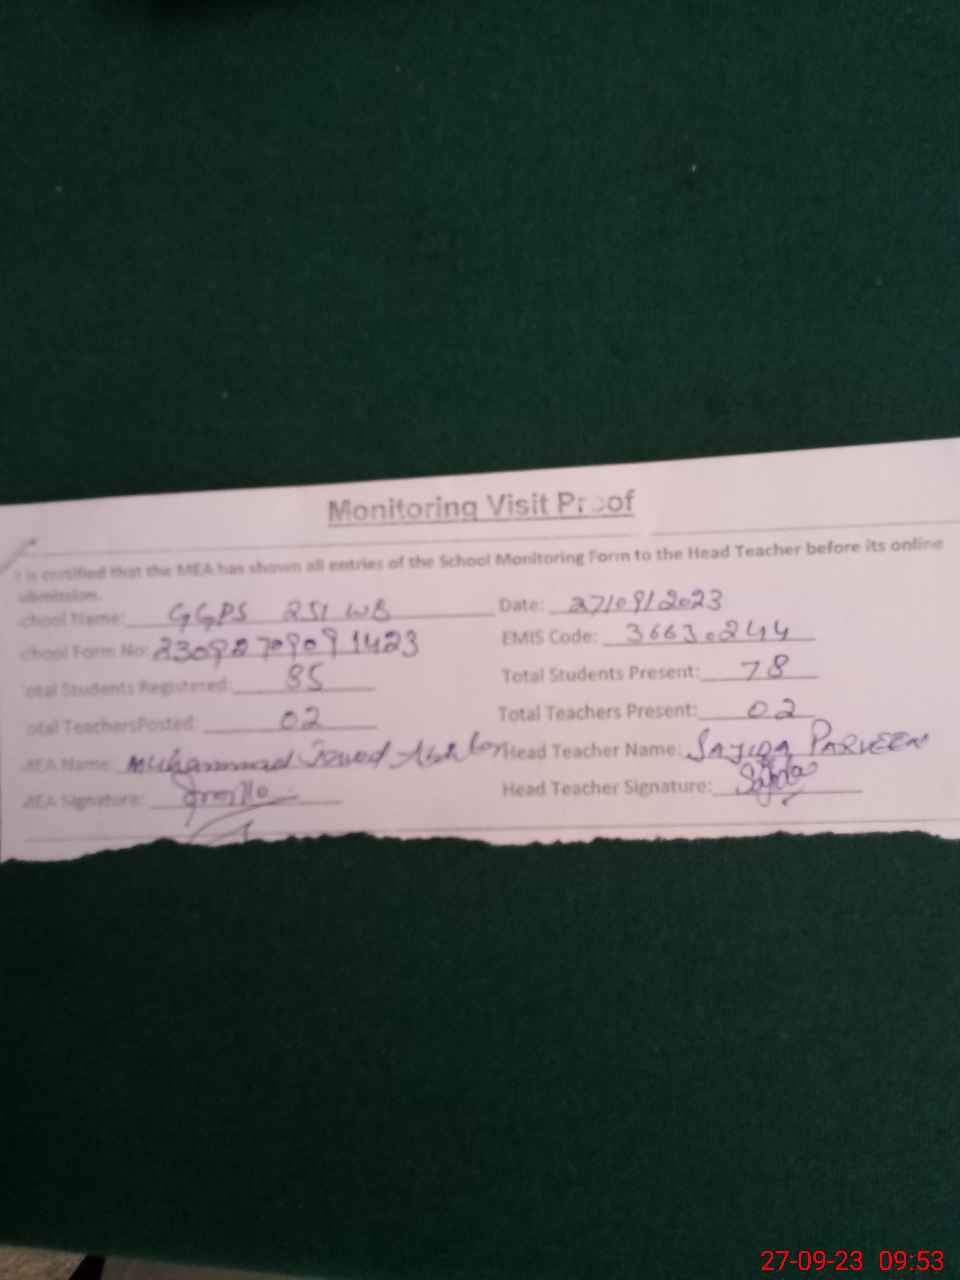 Monitoring Visit Proof
t is certified that the MEA has shown all entries of the School Monitoring Form to the Head Teacher before its online
ubmission.
chool Name: GGPS 251 WB Date: 27/09/2023
chool Form No: EMIS Code: 36630244
otal Students Registered: 85 Total Students Present: 78
otal TeachersPosted: 02 Total Teachers Present: 02
MEA Name: Muhammad Javed Head Teacher Name: SAJIDA PARVEEN
MEA Signature: Head Teacher Signature: Sajida
27-09-23 09:53